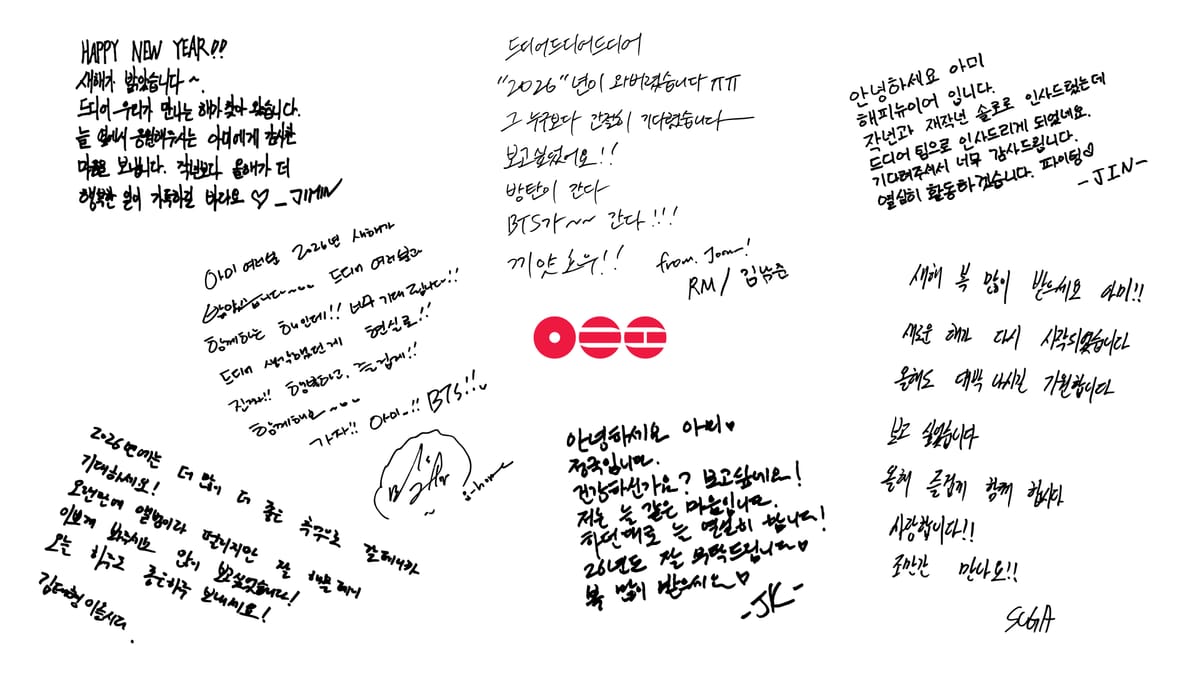 HAPPY NEW YEAR!!
새해가 밝았습니다~
드디어 우리가 만나는 해가 찾아 왔습니다.
늘 옆에서 응원해주시는 아미에게 감사한
마음을 보냅니다. 작년보다 올해가 더
행복한 일이 가득하길 바라요 ♡ _JIMIN
드디어드디어드디어
"2026"년이 와버렸습니다 ㅠㅠ
그 누구보다 간절히 기다렸습니다
보고싶었어요!!
방탄이 간다
BTS가~~ 간다!!!
끼얏호우!!
from. Joon!
RM / 김남준
안녕하세요 아미
해피뉴이어 입니다.
작년과 재작년 솔로로 인사드렸는데
드디어 팀으로 인사드리게 되었네요.
기다려주셔서 너무 감사드립니다.
열심히 활동하겠습니다. 파이팅♡
-JIN-
아미 여러분 2026년 새해가
밝았습니다~~~ 드디어 여러분과
함께하는 해인데!! 너무 기대됩니다!!
드디어 생각했던게 현실로!!
진짜!! 행복하고, 즐겁게!!
함께해요~~~
가자!! 아미_!! BTS!!
j-hope
새해 복 많이 받으세요 아미!!
새로운 해가 다시 시작되었습니다
올해도 대박 나시길 기원합니다
보고 싶었습니다
올해 즐겁게 함께 합시다
사랑합니다!!
조만간 만나요!!
SUGA
2026년에는 더 많이 더 좋은 추억으로 갈테니까
기대하세요!
오랜만에 앨범이라 떨리지만 잘 해볼테니
이쁘게 봐주시요 많이 보고싶었습니다!
오늘 하루도 좋은하루 보내세요!
김태형이올시다.
안녕하세요 아미♥
정국입니다.
건강하신가요? 보고싶네요!
저는 늘 같은 마음입니다.
하던대로 늘 열심히 합니다!
26년도 잘 부탁드립니다♥
복 많이 받으시요♥
-JK-